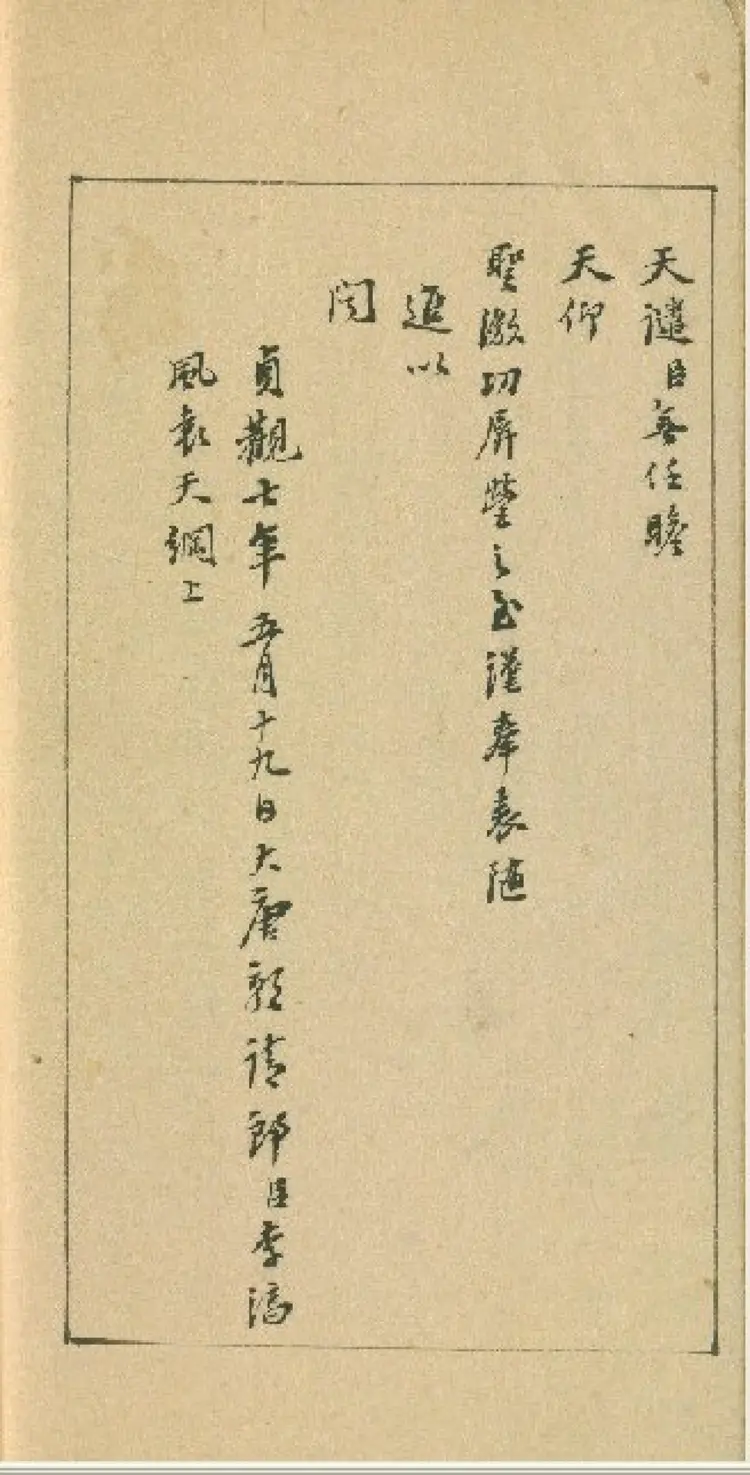 天譴臣無任瞻
天仰
聖激切屏營之至謹奉表隨
進以
聞
貞觀七年五月十九日大唐朝請郎臣李淳
風袁天綱上